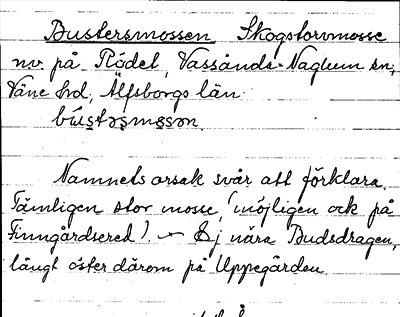 Bustersmossen Skogstorvmosse
nv. på Rödet, Vassända-Naglum sn,
Väne hd, Älfsborgs län.
Namnets orsak svår att förklara.
Tämligen stor mosse, (möjligen ock på
Finngårdsered). — Ej nära Budsdragen,
långt öster därom på Uppegården.